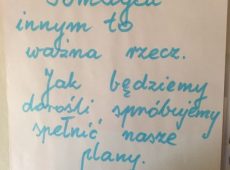 Pomaganie
innym to
ważna rzecz.
Jak będziemy
dorośli spróbujemy
spełnić nasze
plany.